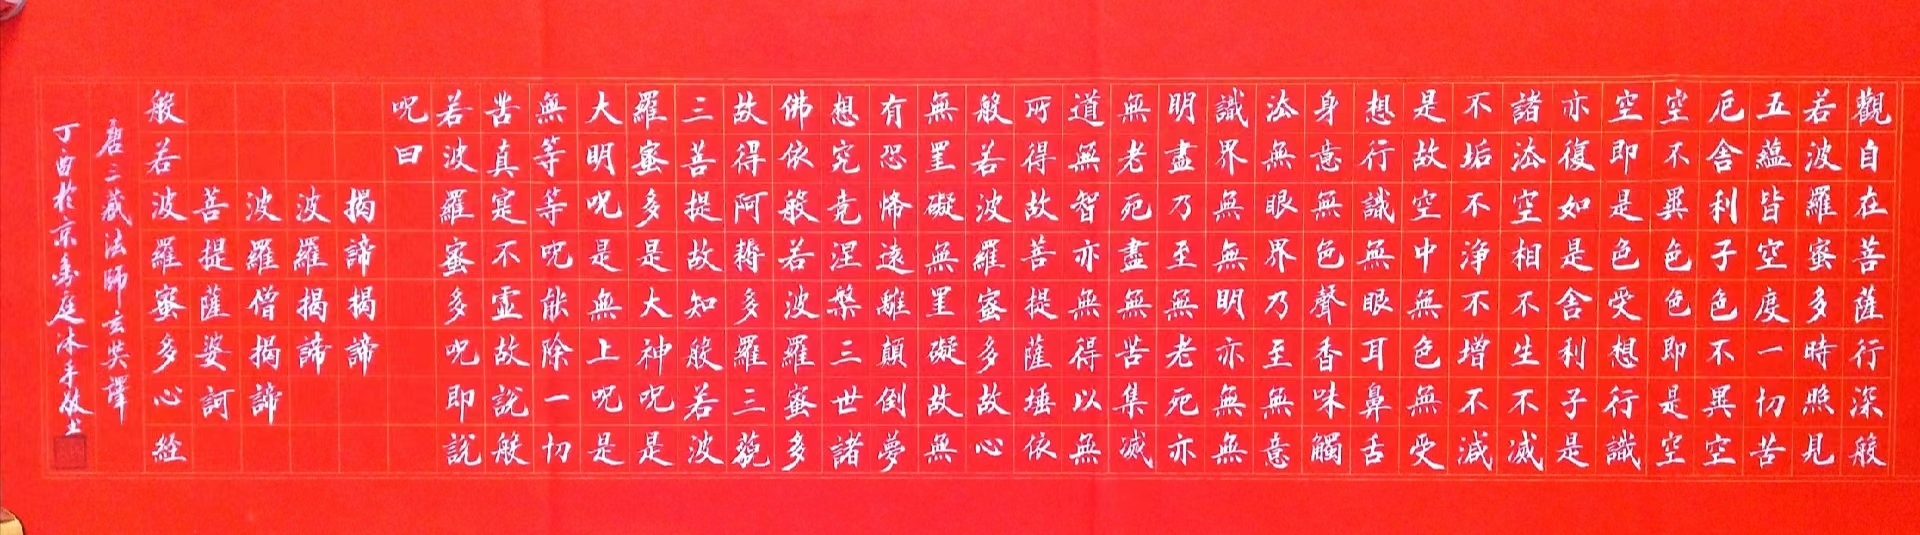 觀自在菩薩行深般
若波羅蜜多時照見
五蘊皆空度一切苦
厄舍利子色不異空
空不異色色即是空
空即是色受想行識
亦復如是舍利子是
諸法空相不生不滅
不垢不淨不增不減
是故空中無色無受
想行識無眼耳鼻舌
身意無色聲香味觸
法無眼界乃至無意
識界無無明亦無無
明盡乃至無老死亦
無老死盡無苦集滅
道無智亦無得以無
所得故菩提薩埵依
般若波羅蜜多故心
無罣礙無罣礙故無
有恐怖遠離顛倒夢
想究竟涅槃三世諸
佛依般若波羅蜜多
故得阿耨多羅三藐
三菩提故知般若波
羅蜜多是大神呪是
大明呪是無上呪是
無等等呪能除一切
苦真寔不虛故說般
若波羅蜜多呪即說
呪曰
揭諦揭諦
波羅揭諦
波羅僧揭諦
菩提薩婆訶
般若波羅蜜多心経
唐三藏法師玄奘譯
丁酉於京華庭沐手敬上